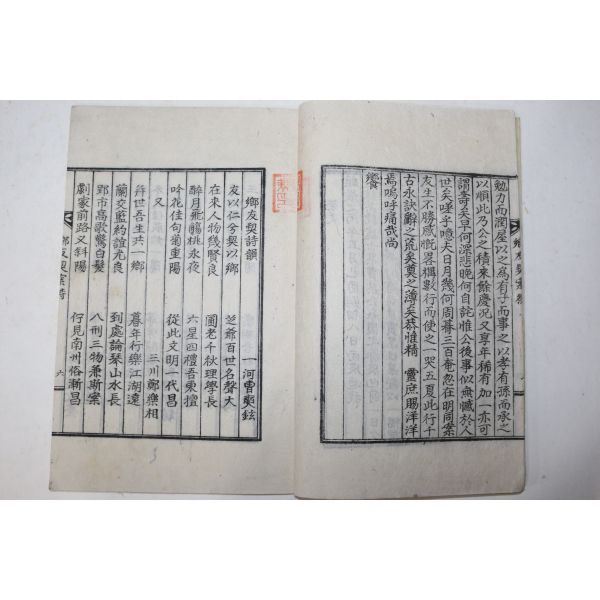 勉力而潤屋以之爲有子而事之以孝有孫而承之
以順此乃公之積來餘慶況又享年稀有加一亦可
謂奇矣夫曰早何浮悲晚何自詑惟公後事似無憾於人
世矣哇子噫夫日月幾何周朞三百奄忽在明同案
友生不勝感慨畧構數行而使之一哭五夏此行千
古永訣辭之荒矣奠之薄矣恭惟精 靈庶賜洋洋
焉嗚呼痛哉尚
饗
鄕友契詩韻
一河曹奭鉉
友以仁兮契以鄕 芝爺百世名聲大
在來人物幾賢良 圃老千秋理學長
醉月飛觴桃永夜 六星四禮吾東擅
吟花佳句菊重陽 從此文明一代昌
又 三川鄭樂相
幷世吾生共一鄕 暮年行樂江湖遠
蘭交藍約誼尤良 到處論琴山水長
野市高歌驚白髮 八刑三物兼斯案
劇家前路又斜陽 行見南州俗漸昌
鄕友契案詩 六